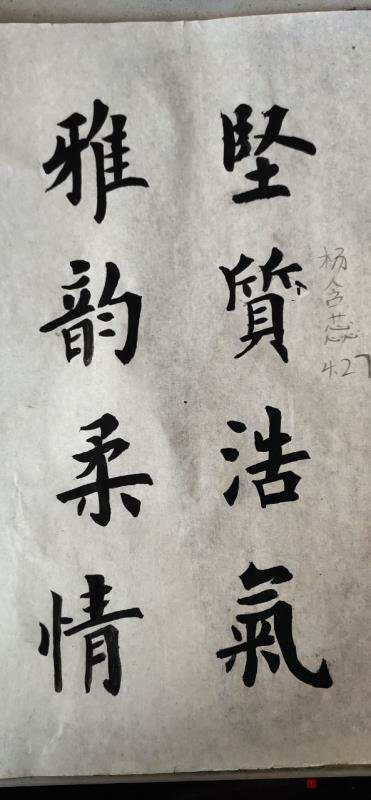 堅質浩氣
雅韵柔情
杨含蕊
4.27